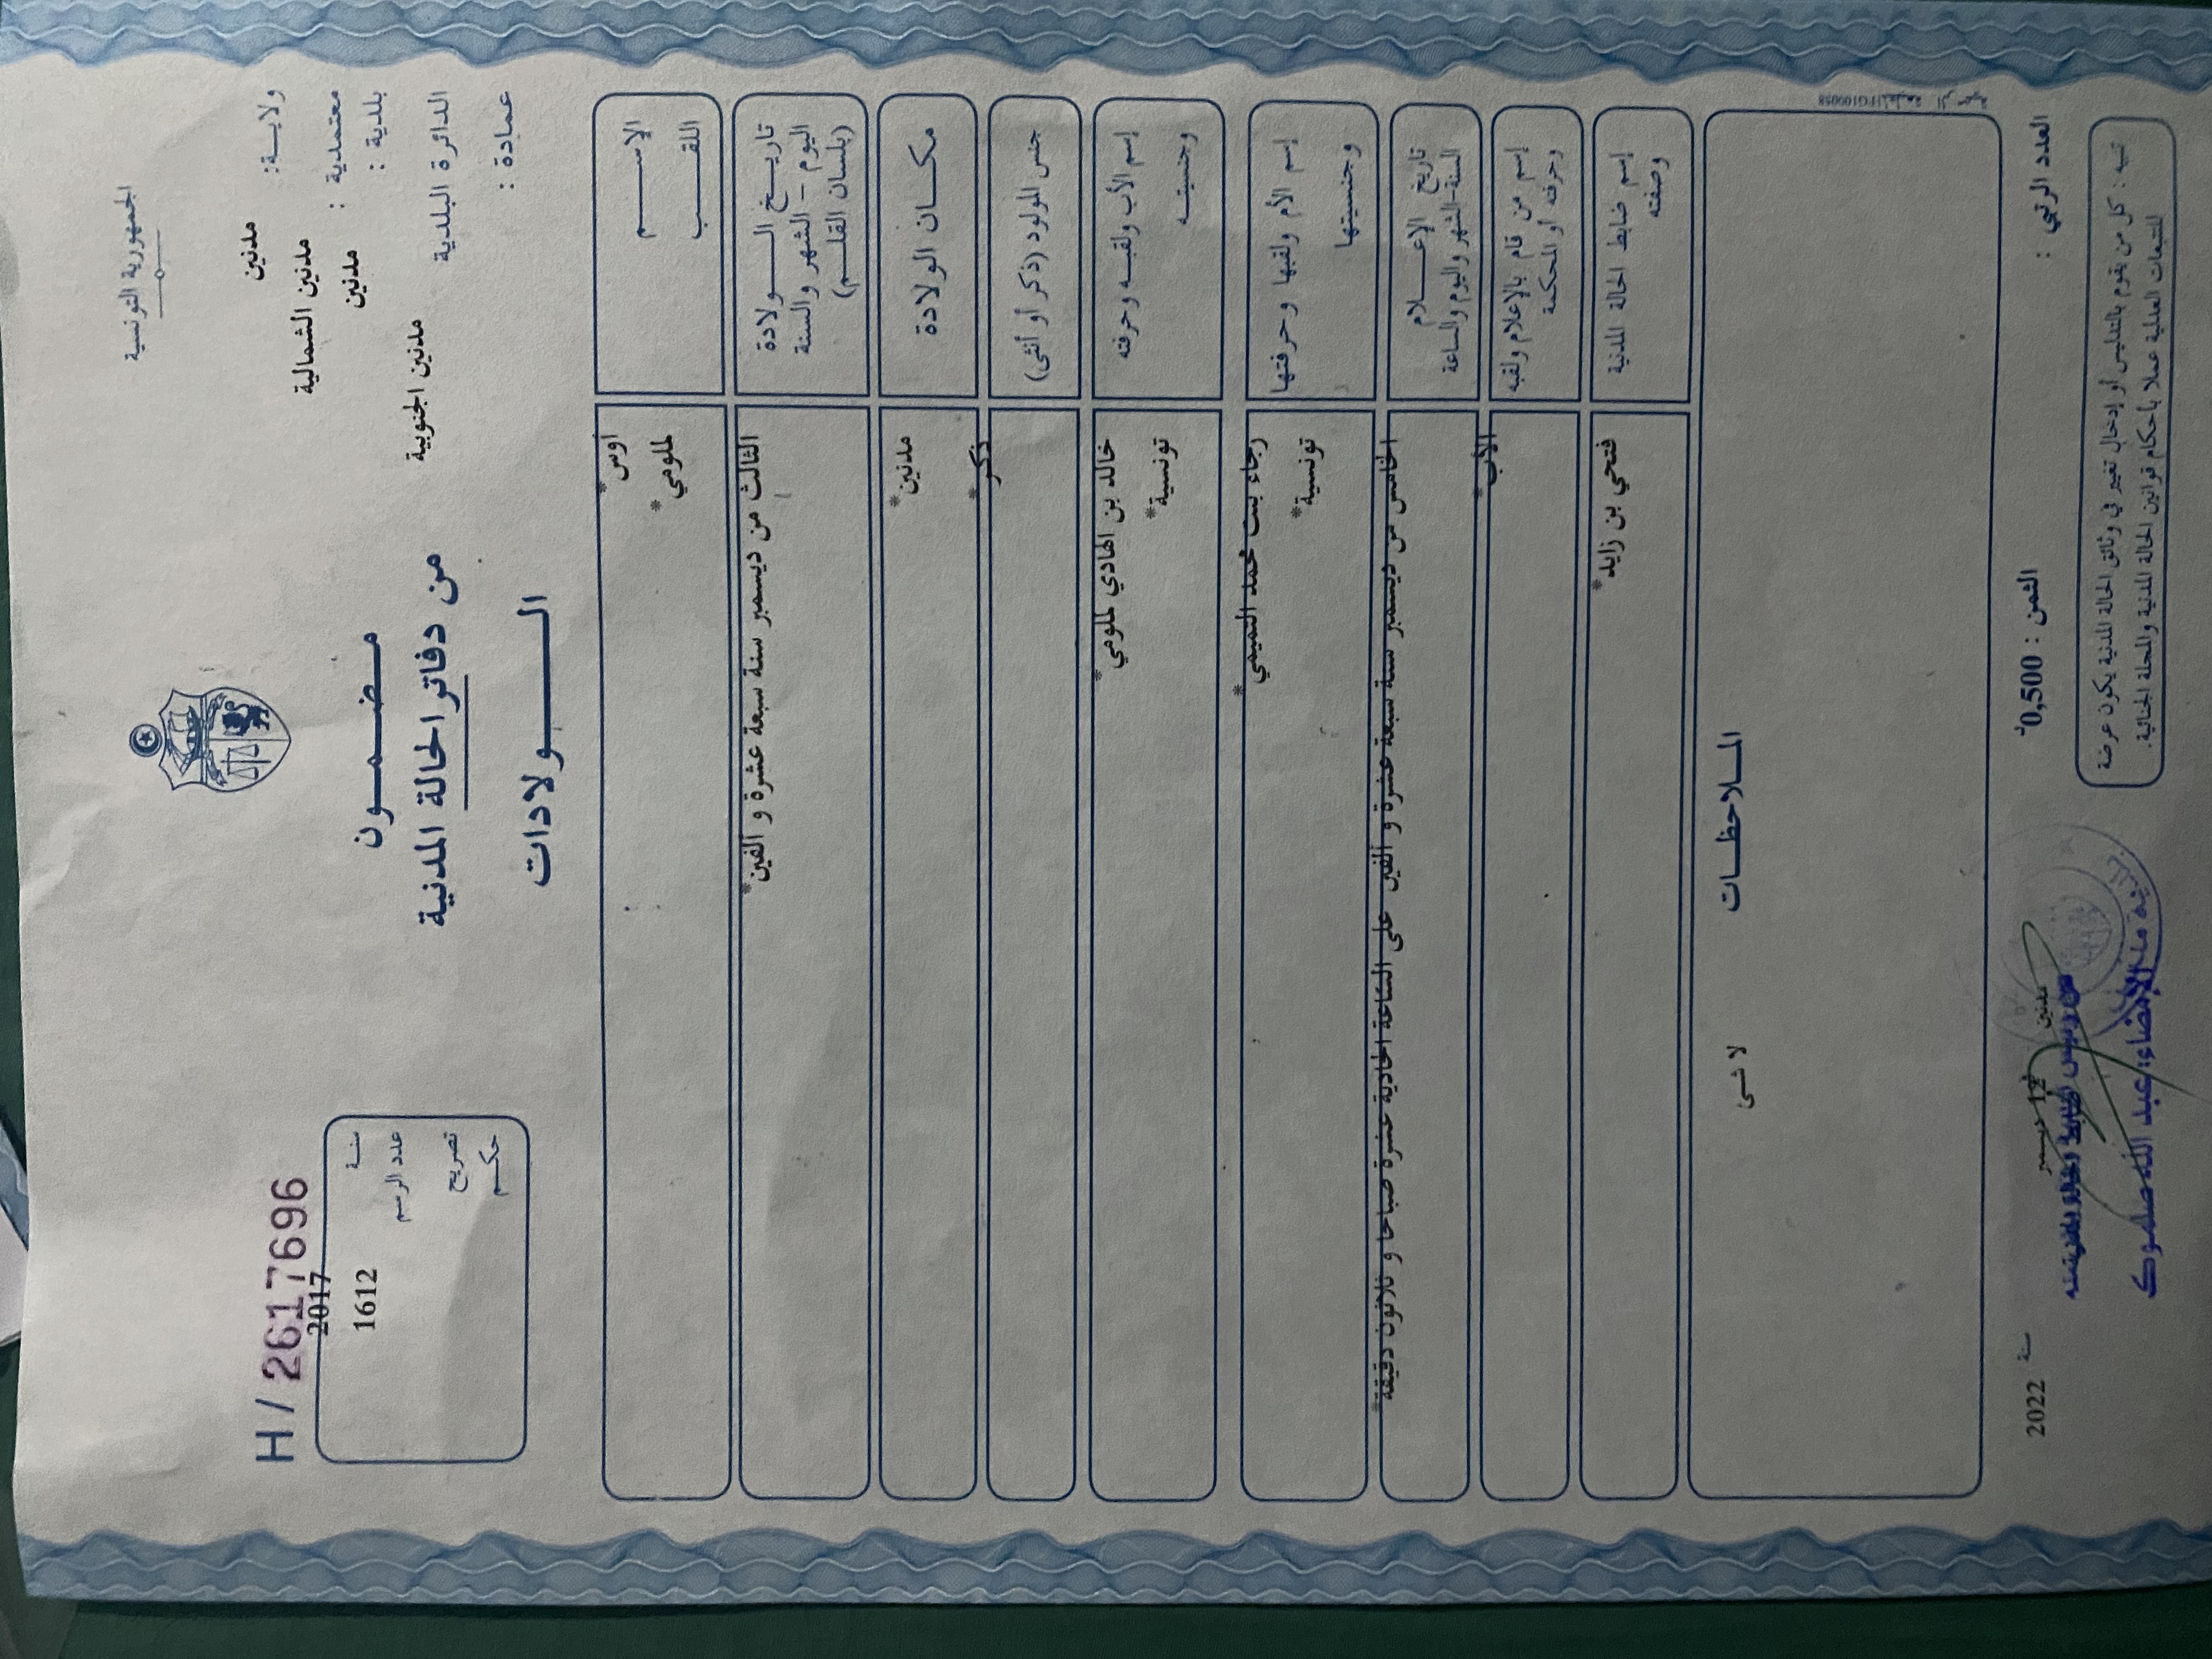 الجمهورية التونسية
ولاية: مدنين
معتمدية : مدنين الشمالية
بلدية : مدنين
الدائرة البلدية مدنين الجنوبية
عمادة :
H/ 2617696
سنة 2017
عدد الرسم 1612
تصريح
حكم
مضمون
من دفاتر الحالة المدنية
الولادات
الإسم *أوس
اللقب *لملومي
تاريخ الولادة
اليوم - الشهر والسنة
(بلسان القلم)
الثالث من ديسمبر سنة سبعة عشرة و ألفين*
مكان الولادة *مدنين
جنس المولود (ذكر أو أنثى) *ذكر
إسم الأب ولقبه وحرفته *خالد بن الهادي لملومي
وجنسيته *تونسية
إسم الأم ولقبها وحرفتها *رجاء بنت محمد التميمي
وجنسيتها *تونسية
تاريخ الإعلام
السنة-الشهر واليوم والساعة
الخامس من ديسمبر سنة سبعة عشرة و ألفين على الساعة الحادية عشرة صباحا و ثلاثون دقيقة*
إسم من قام بالإعلام ولقبه
وحرفته أو المحكمة
*الأب
إسم ضابط الحالة المدنية
وصفته
*فتحي بن زايد
الملاحظات
لا شئ
العدد الرتبي :
الثمن : 0,500د
مدنين 12 ديسمبر سنة 2022
الإمضاء: عبد الله صلموك
تنبيه : كل من يقوم بالتدليس أو إدخال تغيير في وثائق الحالة المدنية يكون عرضة
للتتبعات العدلية عملا بأحكام قوانين الحالة المدنية والمجلة الجنائية.